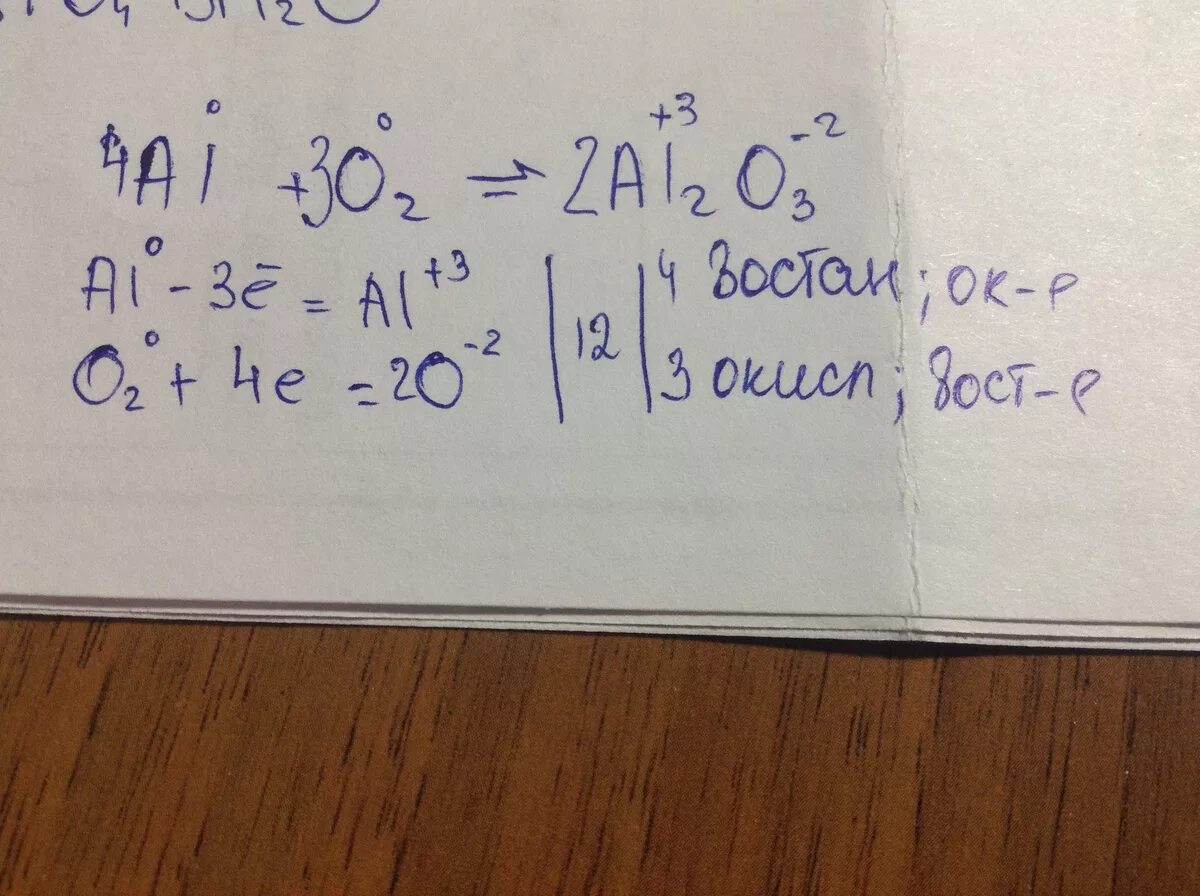 4Al⁰ + 3O₂⁰ ⇌ 2Al₂⁺³O₃⁻²
Al⁰ - 3ē = Al⁺³ | 12 | 4 Востан; ок-е
O₂⁰ + 4e = 2O⁻² | 3 окисл; вост-е